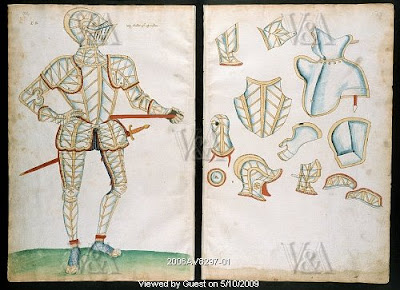 V&A
V&A
V&A
V&A
2006AV8297-01
Viewed by Guest on 5/10/2009